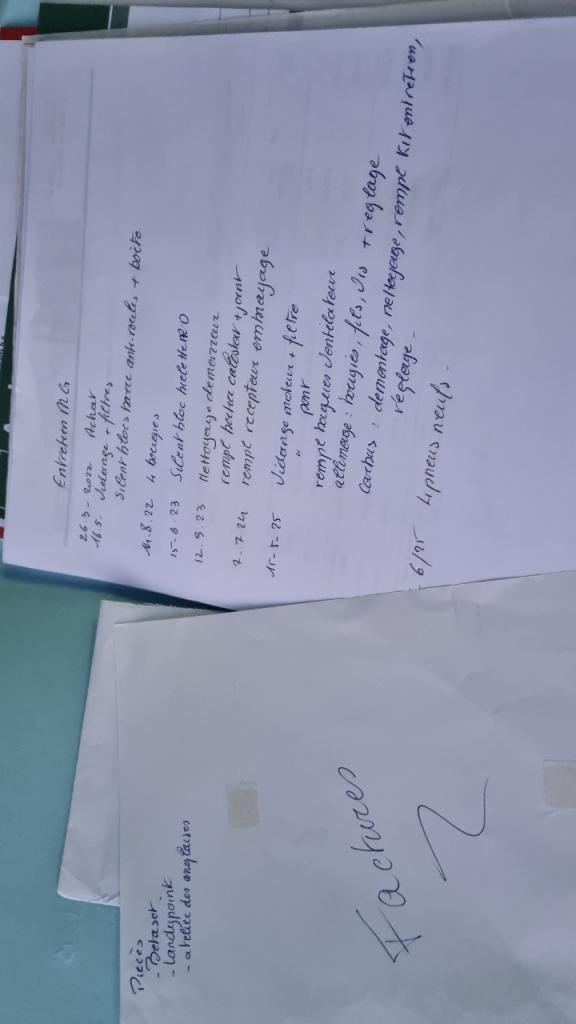 Entretien M.G
26-3-2022 Achat
16.5. Vidange + filtres
Silent blocs barre anti-roulis + boite
14.8.22 4 bougies
15-6-23 Silent bloc
12.9.23 Nettoyage demarreur
rempl culbuteur + joint
7.7.24 rempl recepteur embrayage
15-5-25 Vidange moteur + filtre
" pont
rempl ventilateur
allumage : bougies, fils, vis + reglage
Carbus : demontage, nettoyage, rempl kit entretien,
réglage -
6/25 4 pneus neufs -
Pièces
- Betaset
- Landypoint
- atelier des anglaises
Factures